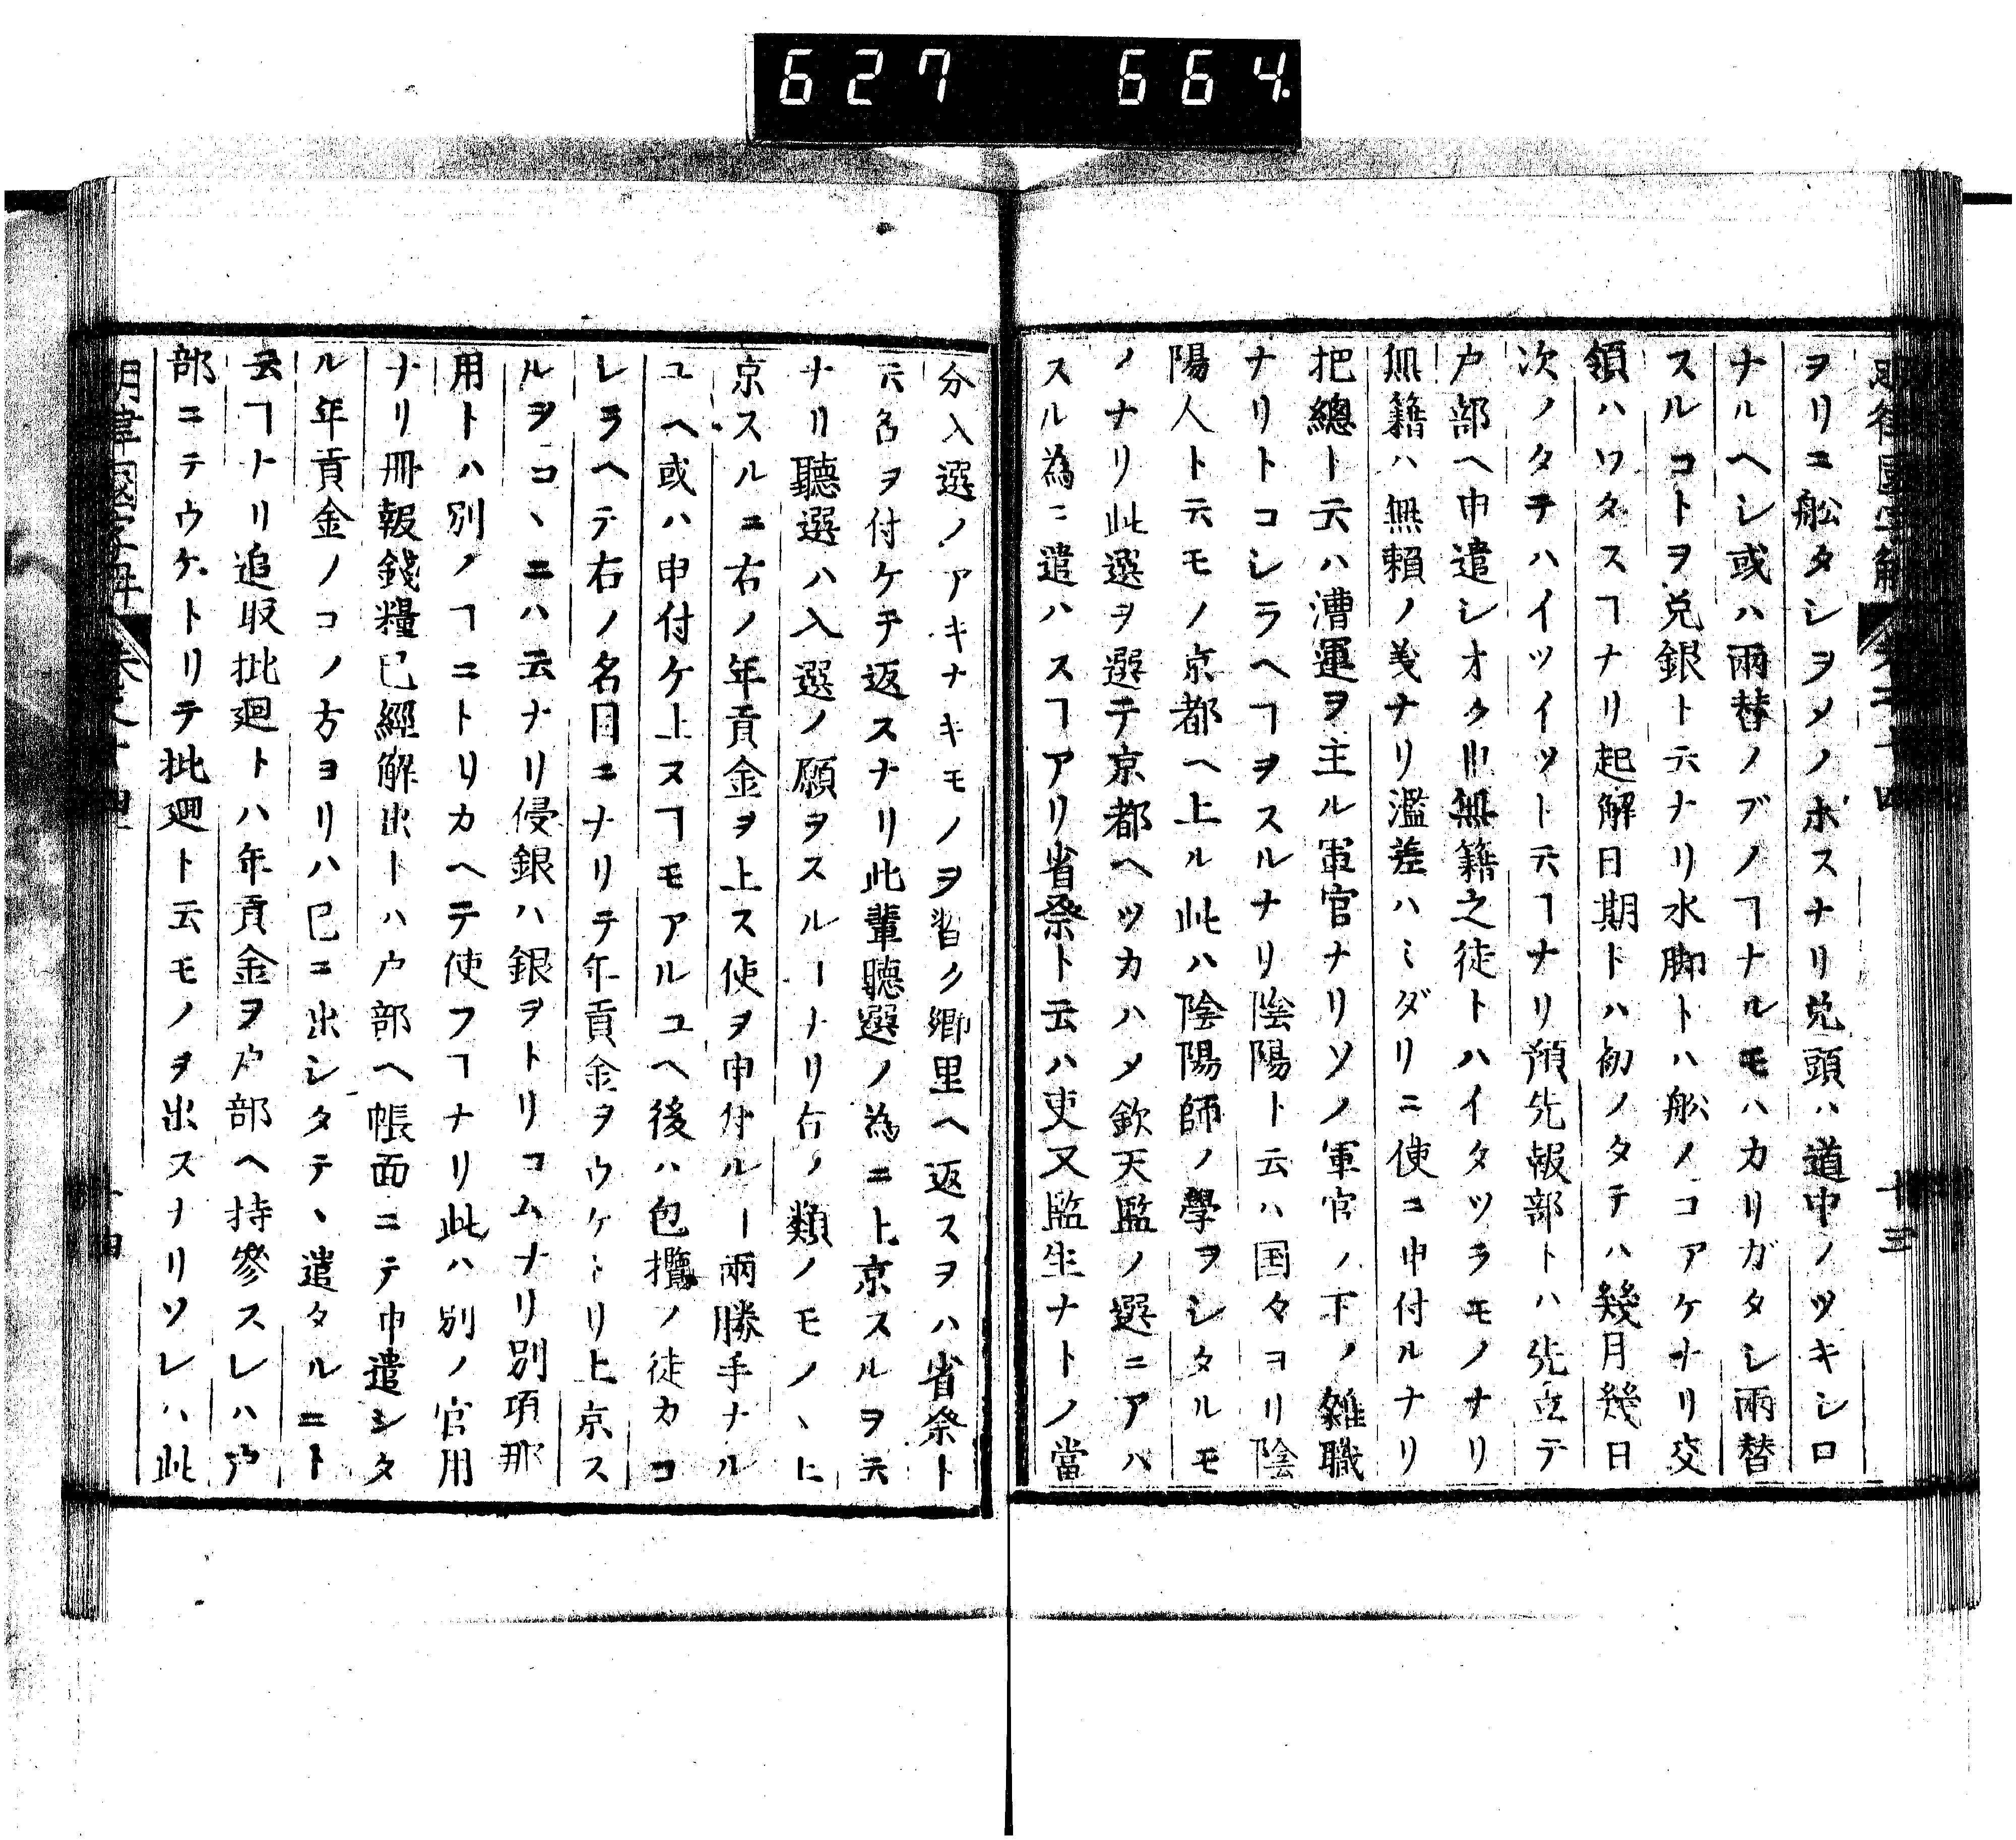 627 664
ヲリニ舩タシヲメノボスナリ兌頭ハ道中ノツキシロ
ナルヘシ或ハ兩替ノブノヿナルモハカリガタシ兩替
スルコトヲ兌銀ト云ナリ水脚トハ舩ノコアケナリ交
領ハワタスヿナリ起解日期トハ初ノタテハ幾月幾日
次ノタチハイツイツト云ヿナリ預先報部トハ先立テ
户部ヘ申遣シオク也無籍之徒トハイタツラモノナリ
無籍ハ無賴ノ義ナリ濫差ハミダリニ使ニ申付ルナリ
把總ト云ハ漕運ヲ主ル軍官ナリソノ軍官ノ下ノ雜職
ナリトコシラヘヿヲスルナリ陰陽ト云ハ国々ヨリ陰
陽人ト云モノ京都ヘ上ル此ハ陰陽師ノ學ヲシタルモ
ノナリ此選ヲ選テ京都ヘツカハメ欽天監ノ選ニアハ
スル為ニ遣ハスヿアリ省祭ト云ハ吏又監生ナトノ當
分入選ノアキナキモノヲ暫ク郷里ヘ返スヲハ省祭ト
云名ヲ付ケテ返スナリ此輩聽選ノ為ニ上京スルヲ云
ナリ聽選ハ入選ノ願ヲスルーナリ右ノ類ノモノヽ上
京スルニ右ノ年貢金ヲ上ス使ヲ申付ルー兩勝手ナル
ユヘ或ハ申付ケ上スヿモアルユヘ後ハ包攬ノ徒カコ
レラヘテ右ノ名目ニナリテ年貢金ヲウケトリ上京ス
ルヲコヽニハ云ナリ侵銀ハ銀ヲトリコムナリ別項那
用トハ別ノヿニトリカヘテ使フヿナリ此ハ別ノ官用
ナリ冊報錢糧已經解出トハ户部ヘ帳面ニテ申遣シタ
ル年貢金ノコノ方ヨリハ已ニ出シタテヽ遣タルニト
云ヿトリ追取批廻トハ年貢金ヲ户部ヘ持參スレハ户
部ニテウケトリテ批廻ト云モノヲ出スナリソレハ此